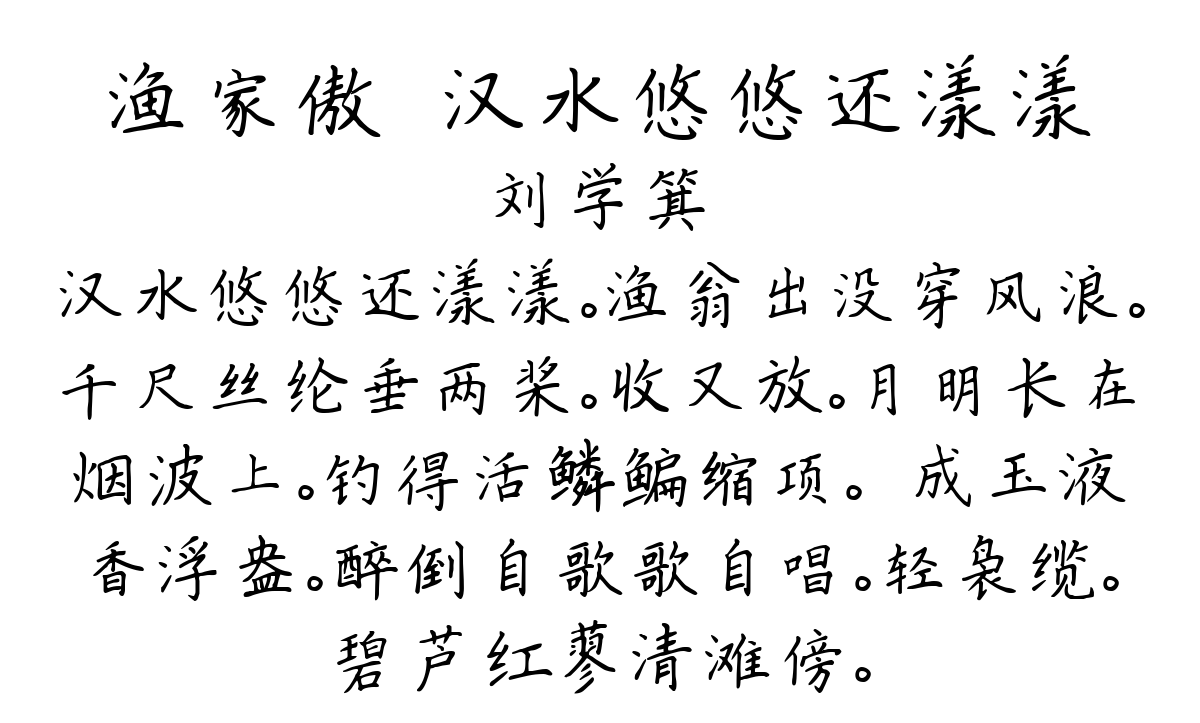 渔家傲 汉水悠悠还漾漾
刘学箕
汉水悠悠还漾漾。渔翁出没穿风浪。
千尺丝纶垂两桨。收又放。月明长在
烟波上。钓得活鳞鳊缩项。 成玉液
香浮盎。醉倒自歌歌自唱。轻袅缆。
碧芦红蓼清滩傍。